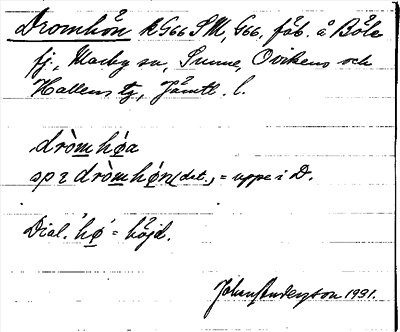 Dromhön k G66 SM, G66, fäb. å Böle
fj., Marby sn, Sunne, Ovikens och
Hallens tg, Jämtl. l.
dròmhø̀a
sp 2 dròmhø̀n (det.) = uppe i D.
Dial. 'hø' = höjd.
John Anderzson 1931.